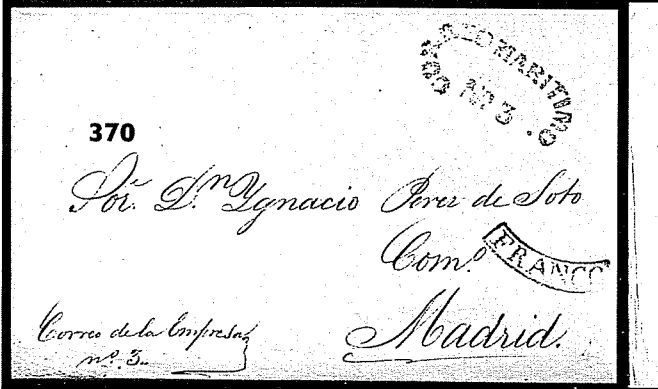 CORREO MARITIMO
Nº 3.
370
Sor. Dn. Ygnacio Perez de Soto
Comº.
FRANCO
Madrid.
Correo de la Empresa
nº. 3.